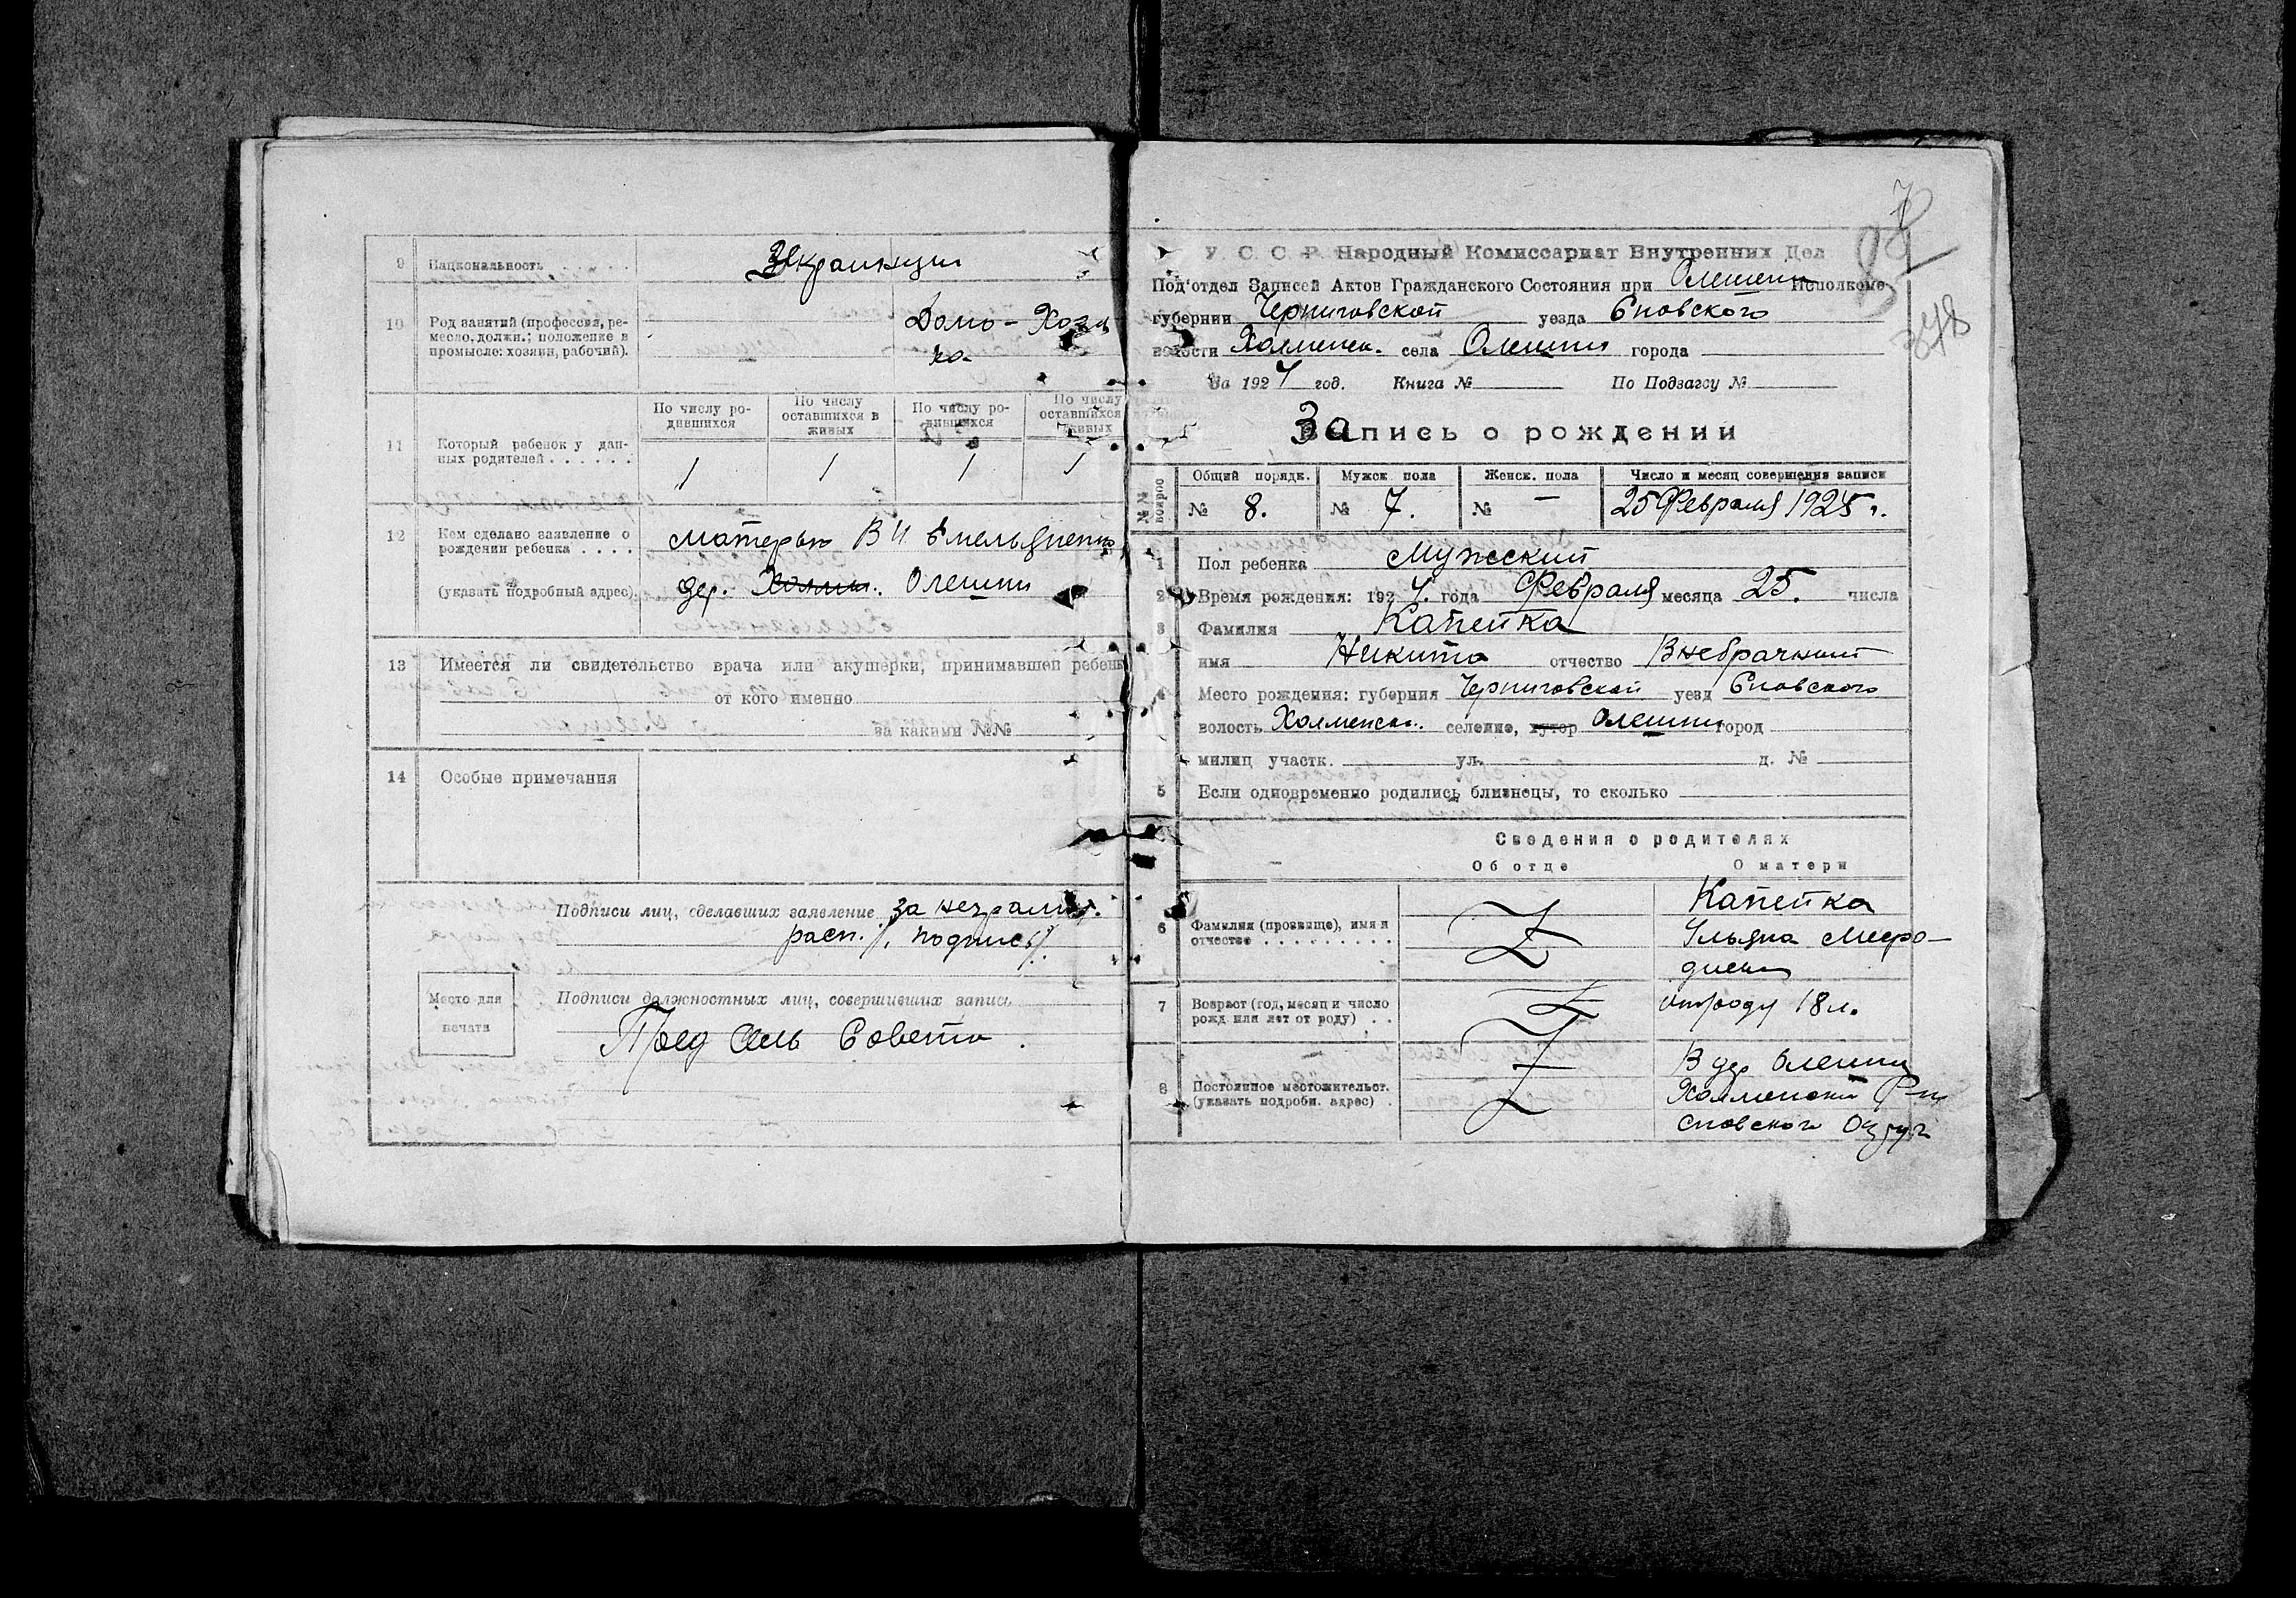 9 Национальность
Украинцы
10 Род занятий (профессия, ре-
месло, должн.; положение в
промысле: хозяин, рабочий).
Домо-Хозя
ка
11 Который ребенок у дан-
ных родителей . . . . . .
По числу ро-
дившихся
По числу
оставшихся в
живых
По числу ро-
дившихся
По числу
оставшихся
живых
1 1 1 1
12 Кем сделано заявление о
рождении ребенка . . . .
(указать подробный адрес).
матерью В И Емельяненко
дер. Холмы. Олешни
13 Имеется ли свидетельство врача или акушерки, принимавшей ребенк
от кого именно
за какими №№
14 Особые примечания
Подписи лиц, сделавших заявление за неграмот.
расп. /. подпись/.
Место для
печати
Подписи должностных лиц, совершивших запись
Пред Сель Совета
У. С. С. Р. Народный Комиссариат Внутренних Дел
Под'отдел Записей Актов Гражданского Состояния при Олешен Исполкоме
губернии Черниговской уезда Сновского
волости Холменск. села Олешни города
За 1924 год. Книга № По Подзагсу №
Запись о рождений
№№ вопрос
Общий порядк. Мужск пола Женск. пола Число и месяц совершения записи
№ 8. № 7. № — 25 Февраля 1925 г.
1 Пол ребенка Мужеский
2 Время рождения: 1924. года Февраля месяца 25. числа
3 Фамилия Капейка
имя Никита отчество Внебрачный
4 Место рождения: губерния Черниговской уезд Сновского
волость Холменск. селение, хутор Олешни город
милиц участк. ул. д. №
5 Если одновременно родились близнецы, то сколько
Сведения о родителях
Об отце О матери
6 Фамилия (прозвище), имя и
отчество . . . . . . . . . .
Z
Капейка
Ульяна Мефо-
диевн
7 Возраст (год, месяц и число
рожд или лет от роду) . .
Z
отроду 18 л.
8 Постоянное местожительст.
(указать подробн. адрес) .
Z
В дер Олешни
Холменски Р-н
Сновского Округ